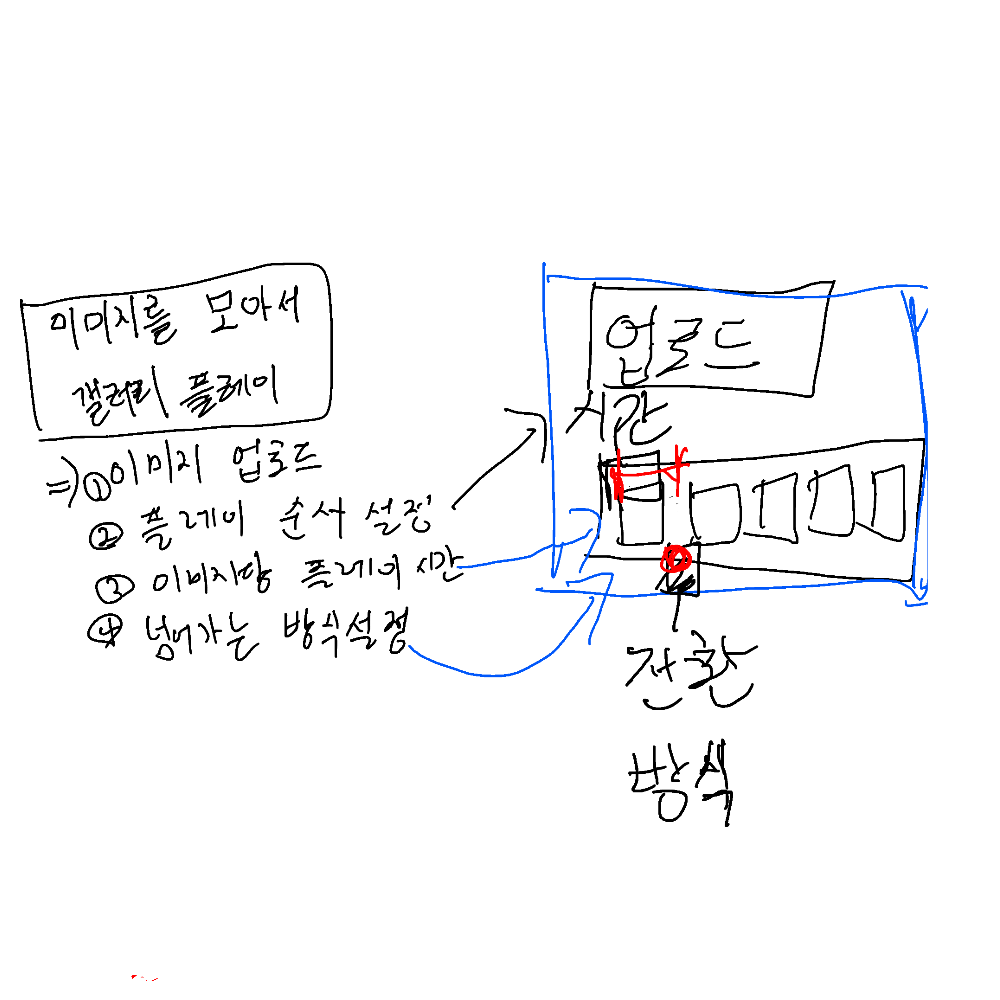 이미지를 모아서
갤러리 플레이
⇒ ① 이미지 업로드
② 플레이 순서 설정
③ 이미지당 플레이 시간
④ 넘어가는 방식설정
업로드
시간
전환
방식